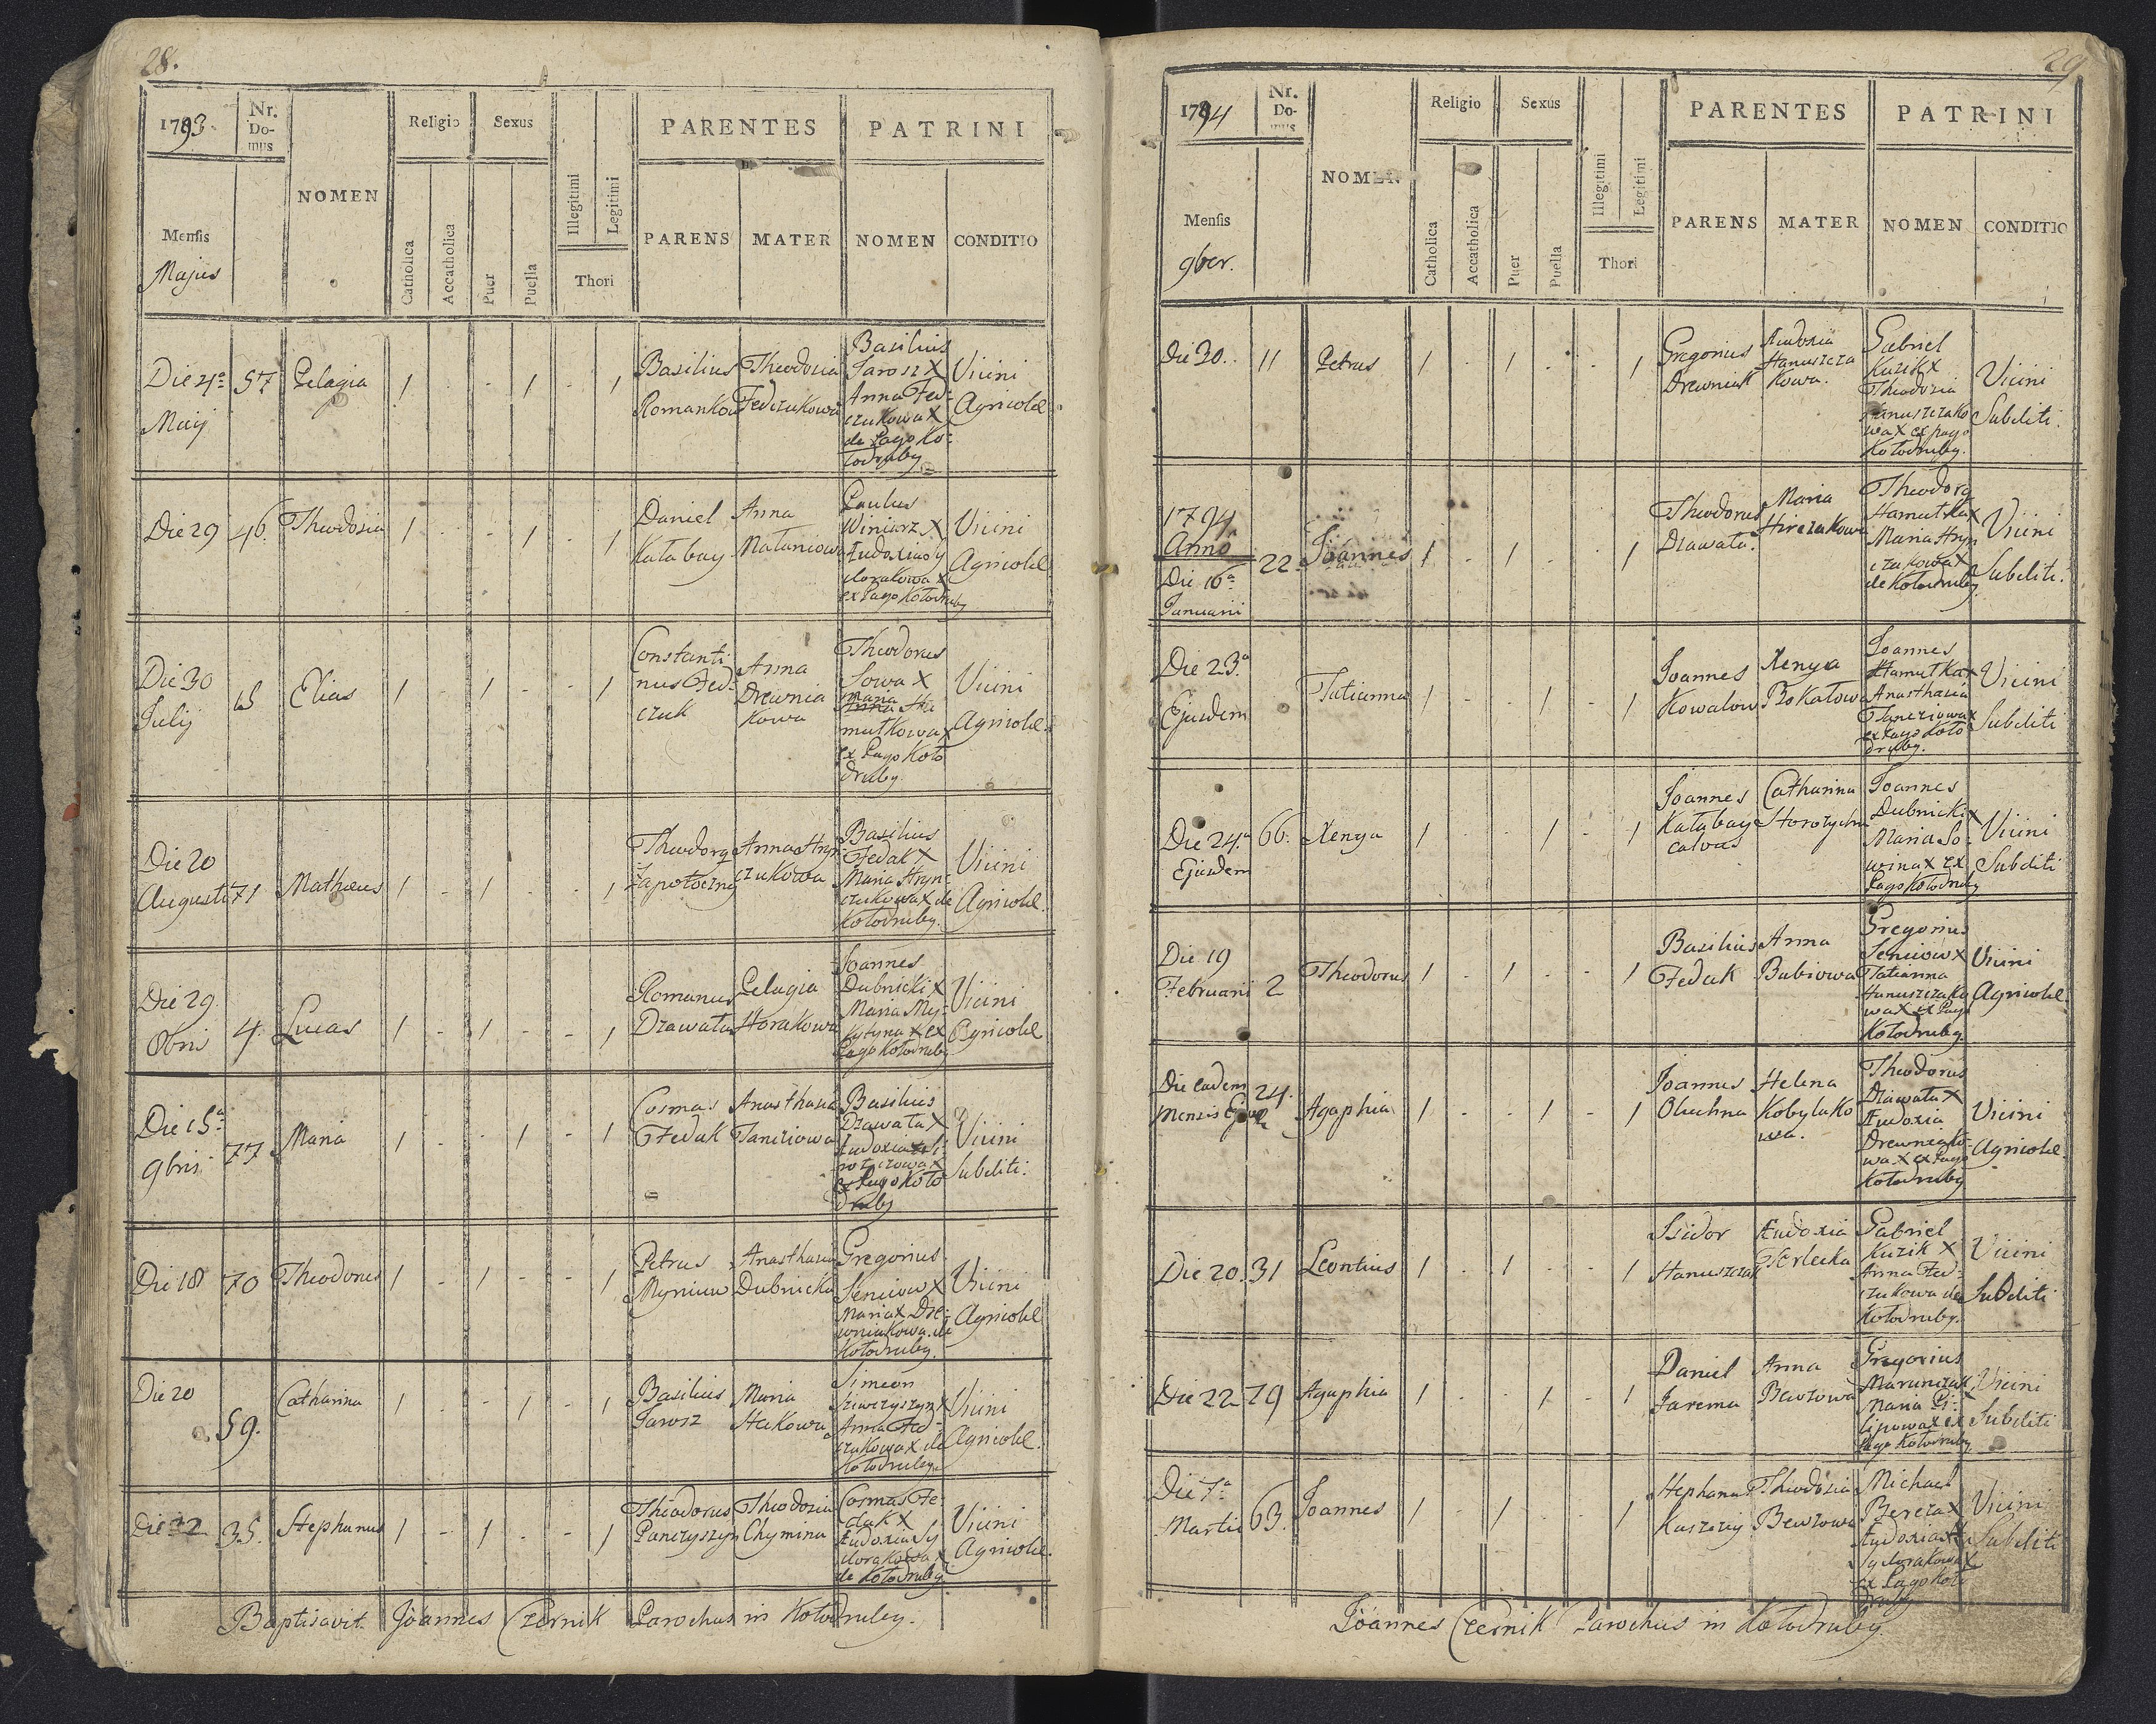 28.
1793.
Nr. Do- mus
NOMEN
Religio
Sexus
Illegitimi
Legitimi
PARENTES
PATRINI
Mensis
Majus
Catholica
Accatholica
Puer
Puella
Thori
PARENS
MATER
NOMEN
CONDITIO
Die 4ª 57 Pelagia 1 - - 1 - 1
Maij
Basilius
Romankow
Theodosia
Fedczukowa
Basilius
Jarosz X
Anna Fed-
czukowa X
de Pago Ko-
lodruby
Vicini
Agricolæ
Die 29 46. Theodosia 1 - - 1 - 1
Daniel
Kałabay
Anna
Paulus
Winiarz X
Eudoxia Sy
dorakowa X
ex Pago Kołodruby
Vicini
Agricolæ
Die 30
Julij
Elias 1 - 1 - - 1
Constanti
nus Fed-
czuk
Anna
Drewnia
kowa
Theodorus
Sowa X
Maria
Anna Ha
mutkowa X
ex Pago Koło
druby.
Vicini
Agricolæ.
Die 20
Augusti 71 Mathæus 1 - 1 - - 1
Zapotoczny
Anna Hryn
czukowa
Basilius
Fedak X
Maria Hryn-
czukowa X de
Kołodruby.
Vicini
Agricolæ.
Die 29.
Obris 4. Lucas 1 - 1 - - 1
Romanus
Dzawała
Pelagia
Horakowa
Joannes
Dubnicki X
Maria My-
kytyna X ex
Pago Kołodruby
Vicini
Agricolæ
Die 15ª
9bris 77 Maria 1 - - 1 - 1
Cosmas
Fedak
Anasthasia
Tanciowa
Basilius
Dzawała X
ex Pago Koło
druby
Vicini
Subditi.
Die 18 70 Theodorus 1 - 1 - - 1
Petrus
Myniuw
Anasthasia
Dubnicka
Gregorius
Seniuow X
Maria X Dre-
wniakowa. de
Kołodruby.
Vicini
Agricolæ
Die 20
59.
Catharina 1 - - 1 - 1
Basilius
Jarosz
Maria
Simeon
Anna Fed-
czukowa X de
Kołodruby.
Vicini
Agricolæ.
Die 22 35. Stephanus 1 - 1 - - 1
Theodorus
Panczyszyn
Theodosia
Chymina
Cosmas Fe-
dak X
Eudoxia Sy
dorakowa X
de Kołodruby
Vicini
Agricolæ.
Baptisavit Joannes Czernik Parochus in Kołodruby.
29
1794
Nr. Do- mus
NOMEN
Religio
Sexus
Illegitimi
Legitimi
PARENTES
PATRINI
Mensis
9ber.
Catholica
Accatholica
Puer
Puella
Thori
PARENS
MATER
NOMEN
CONDITIO
Die 30. 11 Petrus 1 - 1 - - 1
Gregorius
Drewniak
Eudoxia
Hanuszcza
kowa.
Gabriel
Kuzik X
Theodozia
Hanuszczako
wa X ex pago
Kołodruby.
Vicini
Subditi.
1794
Anno
Die 16ª
Januarii
22 Joannes 1 - 1 - - 1
Theodorus
Dzawała.
Maria
Hirczakowa
Hamutka X
Maria Hryn
czukowa X
de Kołodruby
Vicini
Subditi.
Die 23ª
Ejusdem
Tatianna 1 - - 1 - 1
Joannes
Kowalow
Xenya
Bokałowa
Joannes
Hamutka X
Anasthazia
Tanciowa X
ex Pago Koło
druby.
Vicini
Subditi
Die 24ª
Ejusdem
66. Xenya 1 - - 1 - 1
Joannes
Kałabay
calvas
Catharina
Joannes
Dubnicki X
Maria So-
wina X ex
Pago Kołodruby
Vicini
Subditi
Die 19
Februarii 2 Theodorus 1 - 1 - - 1
Basilius
Fedak
Anna
Babiowa
Gregorius
Seniuow X
Tatianna
Hanuszczako
wa X ex Pago
Kołodruby.
Vicini
Agricolæ
Die eadem
Mensis 24. Agaphia 1 - - 1 - 1
Joannes
Oluchna
Helena
Kobylako
wa.
Theodorus
Dzawała X
Eudoxia
Drewniako-
wa X ex Pago
Kołodruby
Vicini
Agricolæ.
Die 20. 31 Leontius 1 - 1 - - 1
Isidor
Hanuszczak
Eudoxia
Terlecka
Gabriel
Kuzik X
Anna Fed-
czukowa de
Kołodruby.
Vicini
Subditi
Die 22 79 Agaphia 1 - - 1 - 1
Daniel
Jarema
Anna
Bewzowa
Gregorius
Maria Pi-
lipowa X ex
Pago Kołodruby
Vicini
Subditi
Die 7ª
Martii 63. Joannes 1 - 1 - - 1
Stephanus
Theodosia
Bewzowa
Michael
Bereza X
Eudoxia X
Sydorakowa X
ex Pago Koło
druby
Vicini
Subditi
Joannes Czernik Parochus in Kołodruby.